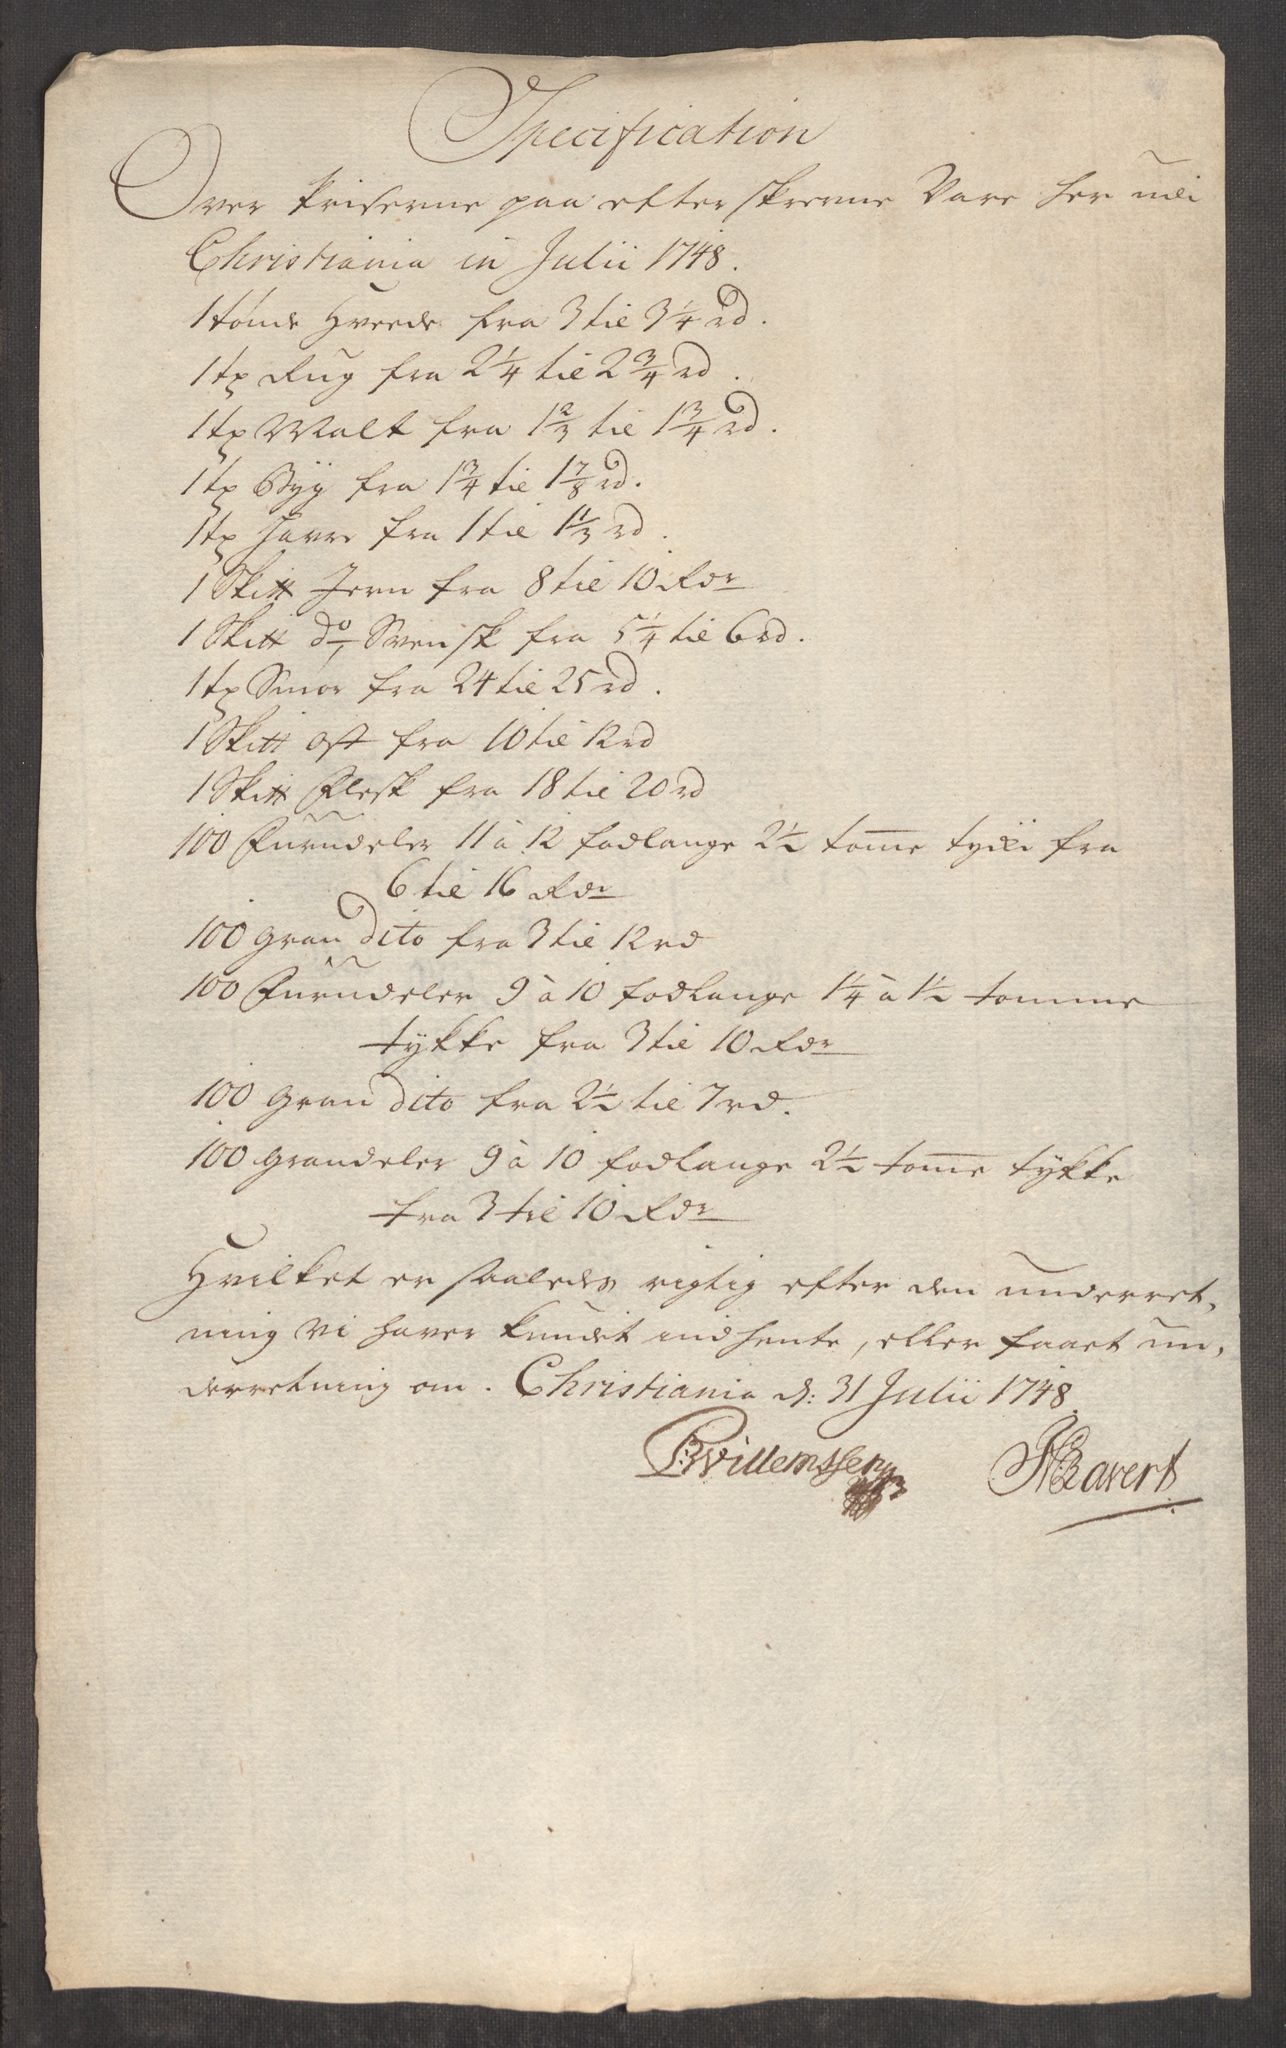 Specification
Over Priserne paa efterskrevne Vare her udi
Christiania in Julii 1748.
1 tønde Hveede fra 3 til 3 1/4 rd.
1 tø Rug fra 2 1/4 til 2 3/4 rd.
1 tø Malt fra 1 2/3 til 1 3/4 rd.
1 tø Byg fra 1 3/4 til 1 7/8 rd.
1 tø Havre fra 1 til 1 1/3 rd.
1 Skitt Jern fra 8 til 10 Rdr
1 Skitt do Svensk fra 5 1/4 til 6 rd.
1 tø Smør fra 24 til 25 rd.
1 Skitt Ost fra 10 til 12 rd
1 Skitt Flesk fra 18 til 20 rd
100 Furudeler 11 à 12 fodlange 2 1/2 tome tycki fra
6 til 16 Rdr
100 Gran Dito fra 3 til 12 rd
100 Furudeler 9 à 10 fodlange 1 1/4 à 1 1/2 tomme
tykke fra 3 til 10 Rdr
100 Gran Dito fra 2 1/2 til 7 rd.
100 Grandeler 9 à 10 fodlange 2 1/2 tome tykke
fra 3 til 10 Rdr
Hvilket er saaledes rigtig efter den underret,
ning vi haver kundet indhente, eller faaet un,
derretning om. Christiania d: 31 Julii 1748.
Willemssen